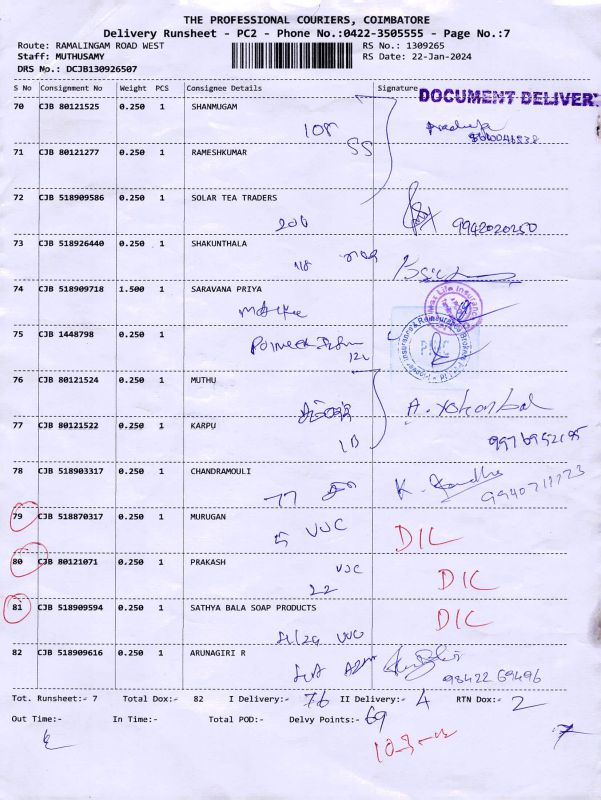 THE PROFESSIONAL COURIERS, COIMBATORE
Delivery Runsheet - PC2 - Phone No.:0422-3505555 - Page No.:7
Route: RAMALINGAM ROAD WEST RS No.: 1309265
Staff: MUTHUSAMY RS Date: 22-Jan-2024
DRS No.: DCJB130926507
S No Consignment No Weight PCS Consignee Details Signature
DOCUMENT DELIVER
70 CJB 80121525 0.250 1 SHANMUGAM
108
71 CJB 80121277 0.250 1 RAMESHKUMAR
SS
72 CJB 518909586 0.250 1 SOLAR TEA TRADERS
206 9942020250
73 CJB 518926440 0.250 1 SHAKUNTHALA
118
74 CJB 518909718 1.500 1 SARAVANA PRIYA
Max Life Insurance
75 CJB 1448798 0.250 1
76 CJB 80121524 0.250 1 MUTHU
77 CJB 80121522 0.250 1 KARPU
1B
78 CJB 518903317 0.250 1 CHANDRAMOULI
77 K.
79 CJB 518870317 0.250 1 MURUGAN
5 VUC DIL
80 CJB 80121071 0.250 1 PRAKASH
VUC DIL
22
81 CJB 518909594 0.250 1 SATHYA BALA SOAP PRODUCTS
DIL
VUC
82 CJB 518909616 0.250 1 ARUNAGIRI R
98422 69496
Tot. Runsheet:- 7 Total Dox:- 82 I Delivery:- 76 II Delivery:- 4 RTN Dox:- 2
Out Time:- In Time:- Total POD:- Delvy Points:- 69